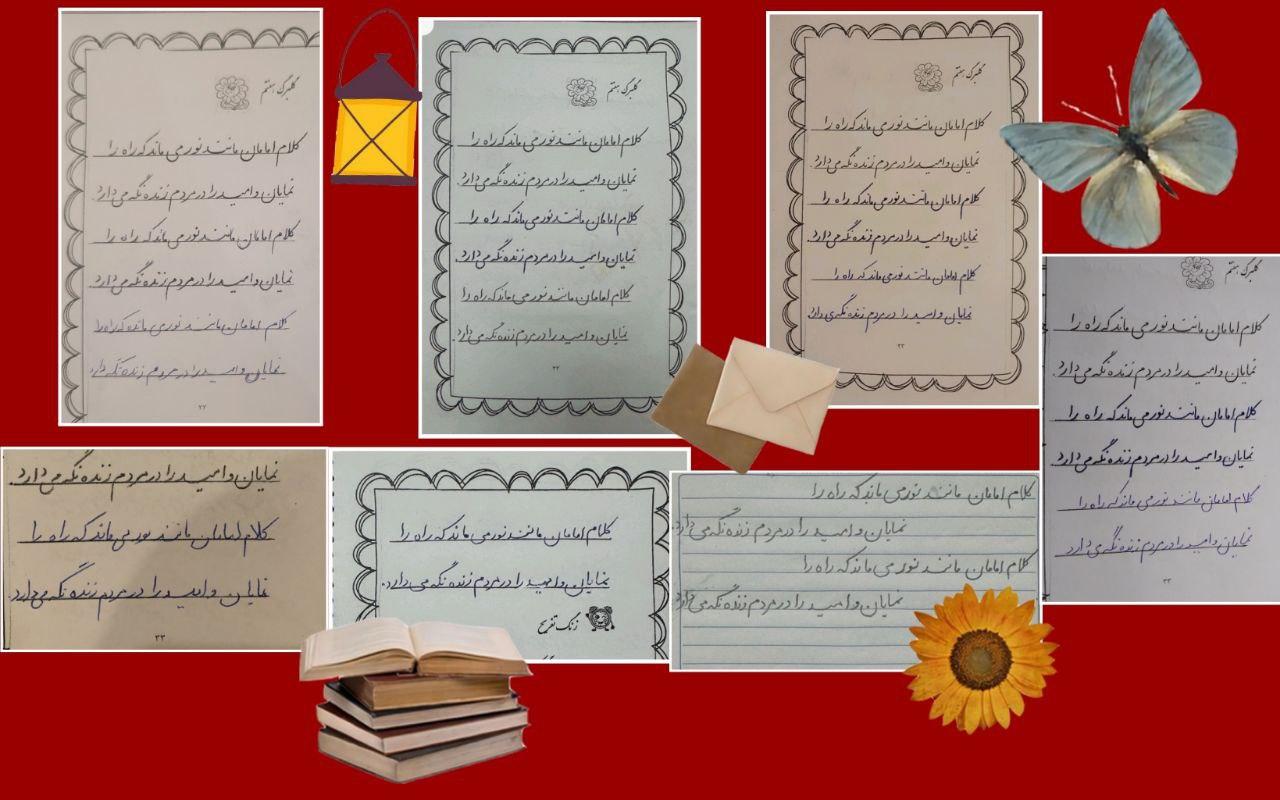 گلبرگ هفتم
کلام امامان مانند نور می ماند که راه را
نمایان و امید را در مردم زنده نگه می دارد.
کلام امامان مانند نور می ماند که راه را
نمایان و امید را در مردم زنده نگه می دارد.
کلام امامان مانند نوری مانده که راه را
نمایان و امید را در مردم زنده نگه دارد
گلبرگ هفتم
کلام امامان مانند نور می ماند که راه را
نمایان و امید را در مردم زنده نگه می دارد.
کلام امامان مانند نور می ماند که راه را
نمایان و امید را در مردم زنده نگه می دارد.
کلام امامان مانند نور می ماند که راه را
نمایان و امید را در مردم زنده نگه می دارد.
گلبرگ هفتم
کلام امامان مانند نور می ماند که راه را
نمایان و امید را در مردم زنده نگه می دارد.
کلام امامان مانند نور می ماند که راه را
نمایان و امید را در مردم زنده نگه می دارد.
کلام امامان مانند نور می ماند که راه را
نمایان و امید را در مردم زنده نگه می دارد.
گلبرگ هفتم
کلام امامان مانند نور می ماند که راه را
نمایان و امید را در مردم زنده نگه می دارد.
کلام امامان مانند نور می ماند که راه را
نمایان و امید را در مردم زنده نگه می دارد.
کلام امامان مانند نور می ماند که راه را
نمایان و امید را در مردم زنده نگه می دارد
نمایان و امید را در مردم زنده نگه می دارد.
کلام امامان مانند نور می ماند که راه را
نمایان و امید را در مردم زنده نگه می دارد.
۳۳
کلام امامان مانند نور می ماند که راه را
نمایان و امید را در مردم زنده نگه می دارد.
زنگ تفریح
کلام امامان مانند نور می ماند که راه را
نمایان و امید را در مردم زنده نگه می دارد.
کلام امامان مانند نور می ماند که راه را
نمایان و امید را در مردم زنده نگه می دارد